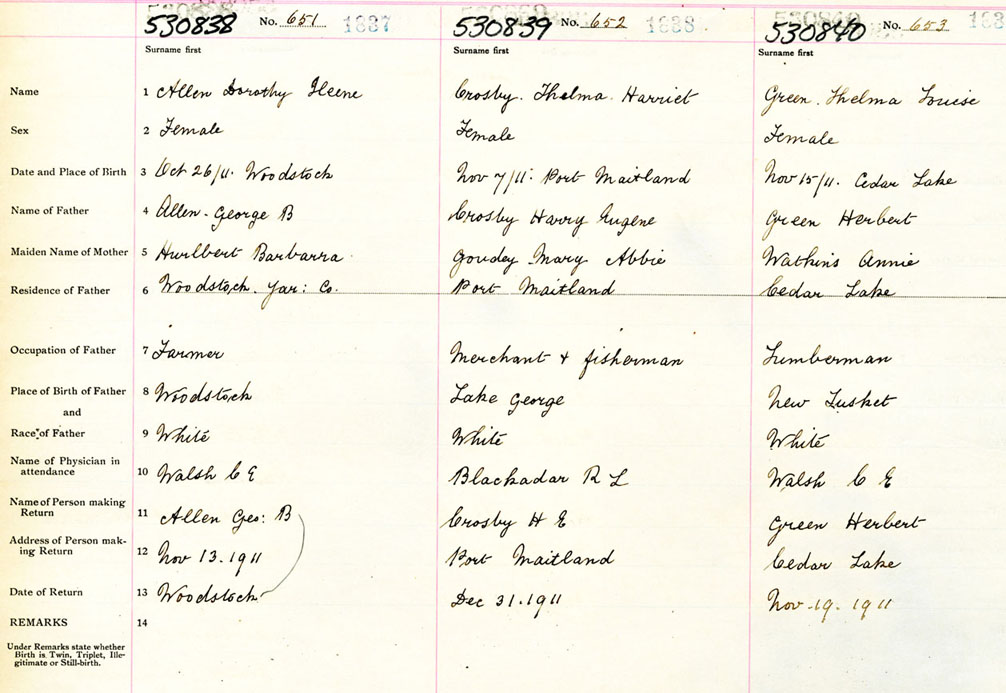 530838 No. 651 1887 530839 No. 652 1888 530840 No. 653
Surname first Surname first Surname first
Name 1 Allen Dorothy Ileene Crosby. Thelma. Harriet Green. Thelma Louise
Sex 2 Female Female Female
Date and Place of Birth 3 Oct 26/11. Woodstock Nov 7/11: Port Maitland Nov 15/11. Cedar Lake
Name of Father 4 Allen - George B Crosby Harry Eugene Green Herbert
Maiden Name of Mother 5 Hurlbert Barbarra Goudey Mary Abbie Watkins Annie
Residence of Father 6 Woodstock. Yar: Co. Port Maitland Cedar Lake
Occupation of Father 7 Farmer Merchant + fisherman Lumberman
Place of Birth of Father 8 Woodstock Lake George New Tusket
and
Race of Father 9 White White White
Name of Physician in
attendance 10 Walsh C E Blackadar R L Walsh C E
Name of Person making
Return 11 Allen Geo: B Crosby H E Green Herbert
Address of Person mak-
ing Return 12 Nov 13. 1911 Port Maitland Cedar Lake
Date of Return 13 Woodstock Dec 31. 1911 Nov. 19. 1911
REMARKS 14
Under Remarks state whether
Birth is Twin, Triplet, Ille-
gitimate or Still-birth.